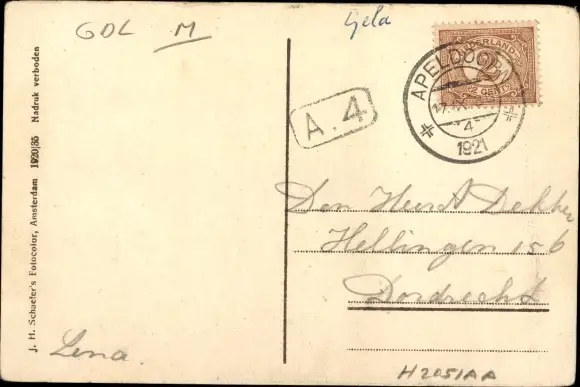 GDL M
Gela
NEDERLAND
2
CENT
APELDOORN
4
1921
A.4
Den Heer A Dekker
Hellingen 156
Dordrecht
Lena.
H2051AA
J. H. Schaefer's Fotocolor, Amsterdam 1920|35 Nadruk verboden